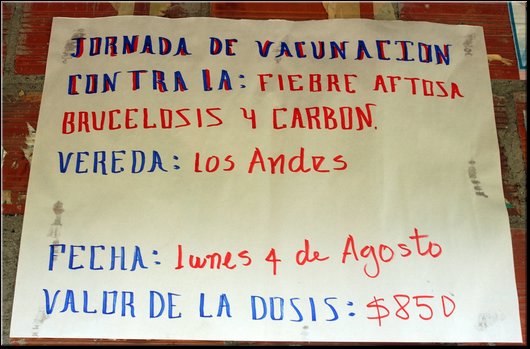 JORNADA DE VACUNACION
CONTRA LA: FIEBRE AFTOSA
BRUCELOSIS Y CARBON.
VEREDA: Los Andes
FECHA: lunes 4 de Agosto
VALOR DE LA DOSIS: $850